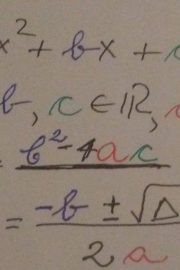 x² + bx + c
b, c ∈ ℝ,
= b² - 4ac
= -b ± √Δ / 2a